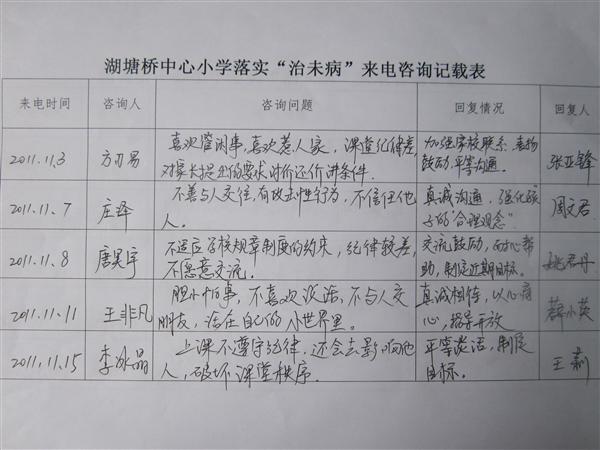 湖塘桥中心小学落实“治未病”来电咨询记载表
来电时间 咨询人 咨询问题 回复情况 回复人
2011.11.3 方刃易 喜欢管闲事,喜欢惹人家,课堂纪律差, 加强家校联系,表扬 张亚锋
对家长提出的要求讨价还价讲条件. 鼓励,平等沟通.
2011.11.7 庄泽 不善与人交往,有攻击性行为,不信任他 真诚沟通,强化孩 周文君
人. 子的“合理观念”
2011.11.8 唐昊宇 不适应学校规章制度的约束,纪律较差, 交流鼓励,耐心帮 姚君丹
不愿意交流. 助,制定近期目标.
2011.11.11 王非凡 胆小怕事,不喜欢说话,不与人交 真诚相待,以心商 薛小英
朋友,活在自己的小世界里. 心,指导开放
2011.11.15 李冰晶 上课不遵守纪律,还会去影响他 平等谈话,制定 王莉
人,破坏课堂秩序. 目标.